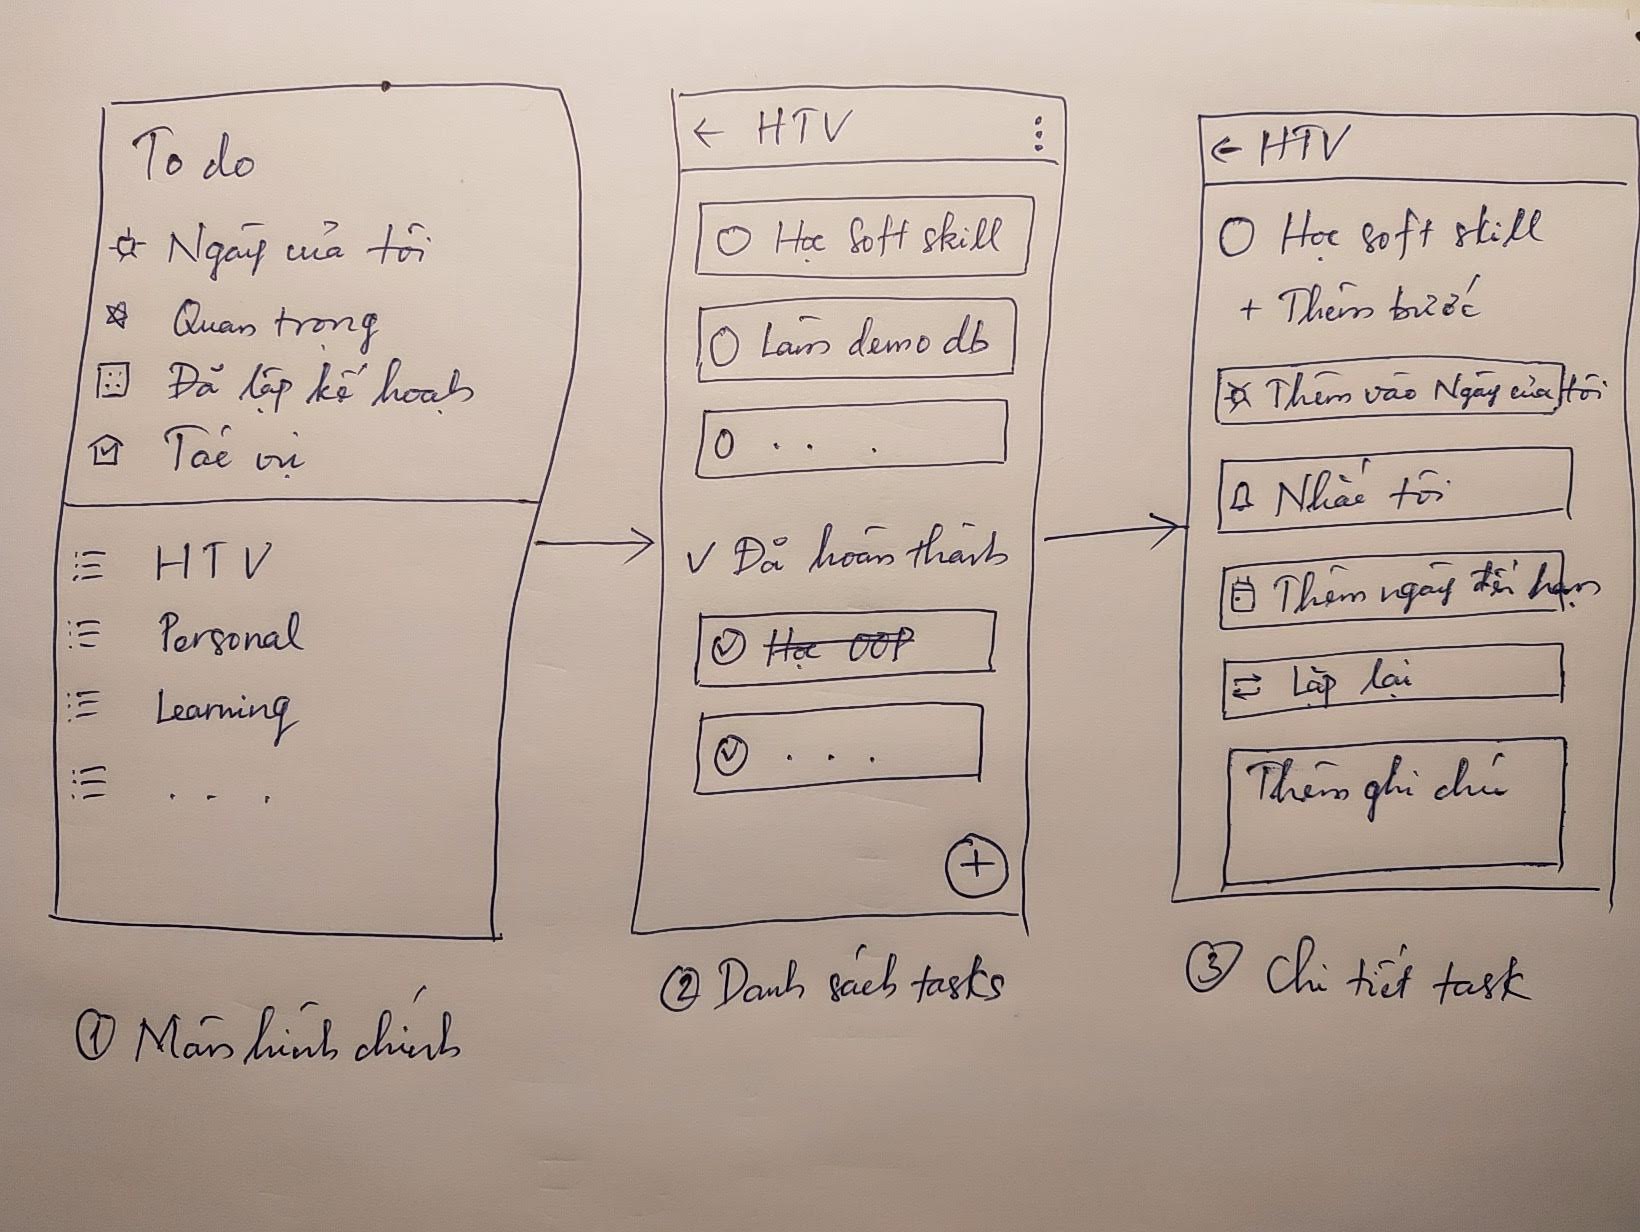 To do
Ngày của tôi
Quan trọng
Đã lập kế hoạch
Tác vụ
HTV
Personal
Learning
. . .
① Màn hình chính
← HTV
Học soft skill
Làm demo db
. . .
✓ Đã hoàn thành
Học OOP
. . .
+
② Danh sách tasks
← HTV
Học soft skill
+ Thêm bước
Thêm vào Ngày của tôi
Nhắc tôi
Thêm ngày đến hạn
Lặp lại
Thêm ghi chú
③ Chi tiết task